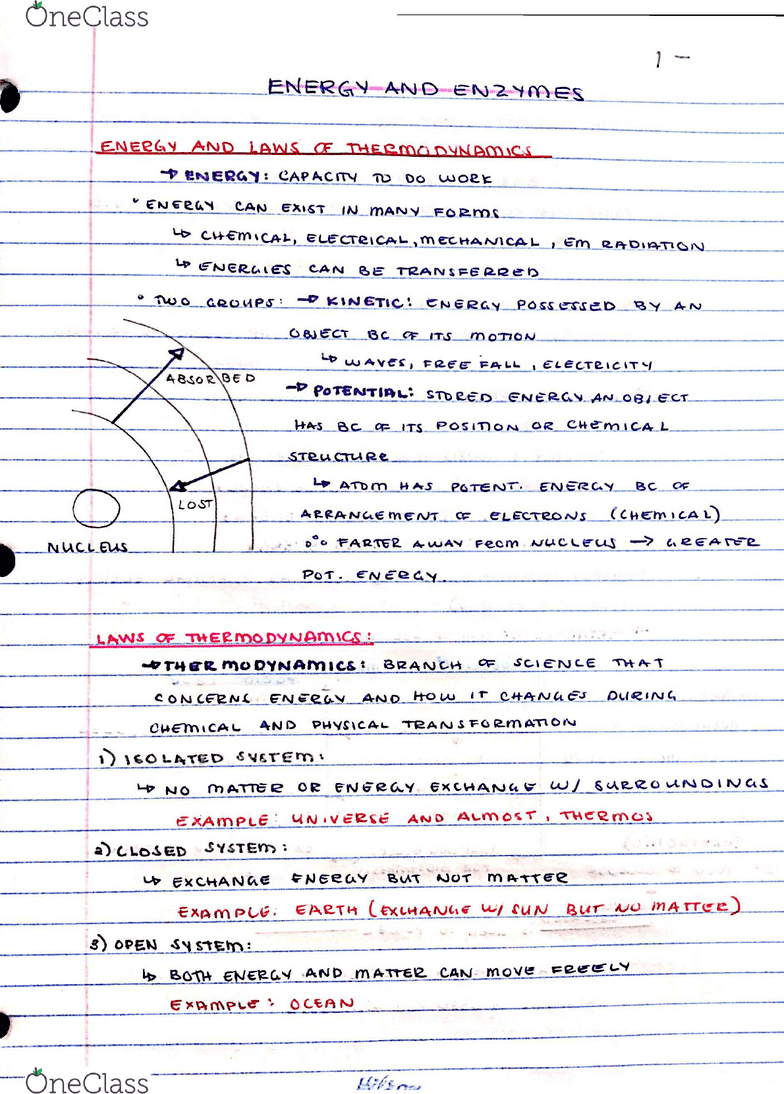 OneClass
1 -
ENERGY AND ENZYMES
ENERGY AND LAWS OF THERMODYNAMICS
→ ENERGY: CAPACITY TO DO WORK
• ENERGY CAN EXIST IN MANY FORMS
↳ CHEMICAL, ELECTRICAL, MECHANICAL, EM RADIATION
↳ ENERGIES CAN BE TRANSFERRED
• TWO GROUPS: → KINETIC: ENERGY POSSESSED BY AN
OBJECT BC OF ITS MOTION
↳ WAVES, FREE FALL, ELECTRICITY
ABSORBED
→ POTENTIAL: STORED ENERGY AN OBJECT
HAS BC OF ITS POSITION OR CHEMICAL
STRUCTURE
↳ ATOM HAS POTENT. ENERGY BC OF
LOST
ARRANGEMENT OF ELECTRONS (CHEMICAL)
NUCLEUS
∴ FARTER AWAY FROM NUCLEUS → GREATER
POT. ENERGY.
LAWS OF THERMODYNAMICS:
→ THERMODYNAMICS: BRANCH OF SCIENCE THAT
CONCERNS ENERGY AND HOW IT CHANGES DURING
CHEMICAL AND PHYSICAL TRANSFORMATION
1) ISOLATED SYSTEM:
↳ NO MATTER OR ENERGY EXCHANGE W/ SURROUNDINGS
EXAMPLE: UNIVERSE AND ALMOST, THERMOS
2) CLOSED SYSTEM:
↳ EXCHANGE ENERGY BUT NOT MATTER
EXAMPLE: EARTH (EXCHANGE W/ SUN BUT NO MATTER)
3) OPEN SYSTEM:
↳ BOTH ENERGY AND MATTER CAN MOVE FREELY
EXAMPLE: OCEAN
OneClass
Hilroy